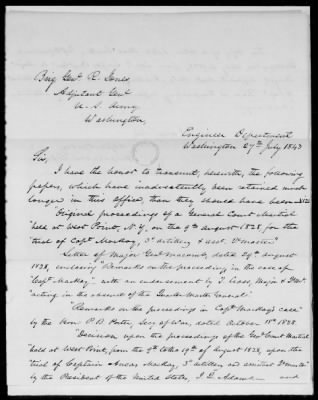 Brig Genl. R. Jones,
Adjutant Genl
U. S. Army
Washington,
Engineer Department
Washington 27th July 1843
Sir,
I have the honor to transmit, herewith, the following
papers, which have inadvertently been retained much
longer in this office than they should have been
"Original proceedings of a General Court Martial
"held at West Point, N. Y. on the 9th august 1828, for the
"trial of Capt. Mackay, 3d artillery & asst. Qr. master"
Letter of Major Genl Macomb, dated 29th august
1828, enclosing "Remarks on the proceedings in the case of
"Capt. Mackay" with an endorsement by T. Cross, Major & Qr Mr.
"acting in the absence of the Quarter Master General"
"Remarks on the proceedings in Capt. Mackay's case"
by the Hon. P. B. Porter, Secy. of War, dated October 18th 1828.
"Decision upon the proceedings of the Genl. Court Martial
"held at West Point, from the 9th to the 19th of august 1828, upon the
"trial of Captain Aeneas Mackay, 3d artillery and assistant Qr. master"
by the President of the United States, J. Q. Adams and